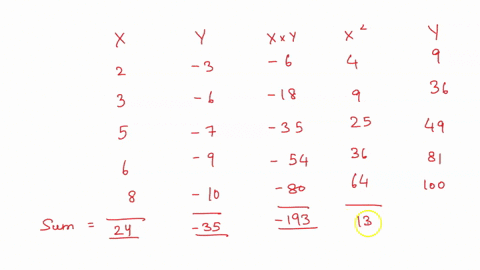 X Y X x Y X² Y
2 -3 -6 4 9
3 -6 -18 9 36
5 -7 -35 25 49
6 -9 -54 36 81
8 -10 -80 64 100
Sum = 24 -35 -193 13